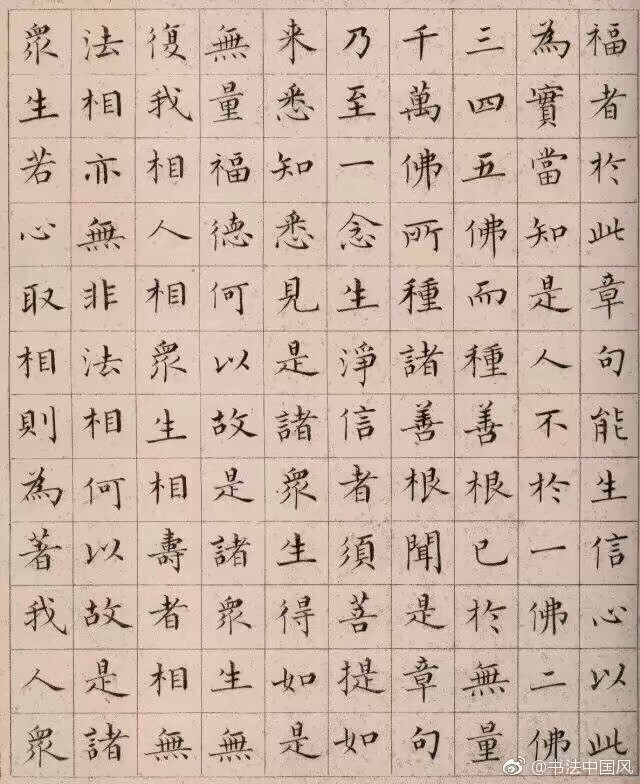 福者於此章句能生信心以此
為實當知是人不於一佛二佛
三四五佛而種善根已於無量
千萬佛所種諸善根聞是章句
乃至一念生淨信者須菩提如
来悉知悉見是諸眾生得如是
無量福德何以故是諸眾生無
復我相人相眾生相壽者相無
法相亦無非法相何以故是諸
眾生若心取相則為著我人眾
@书法中国风